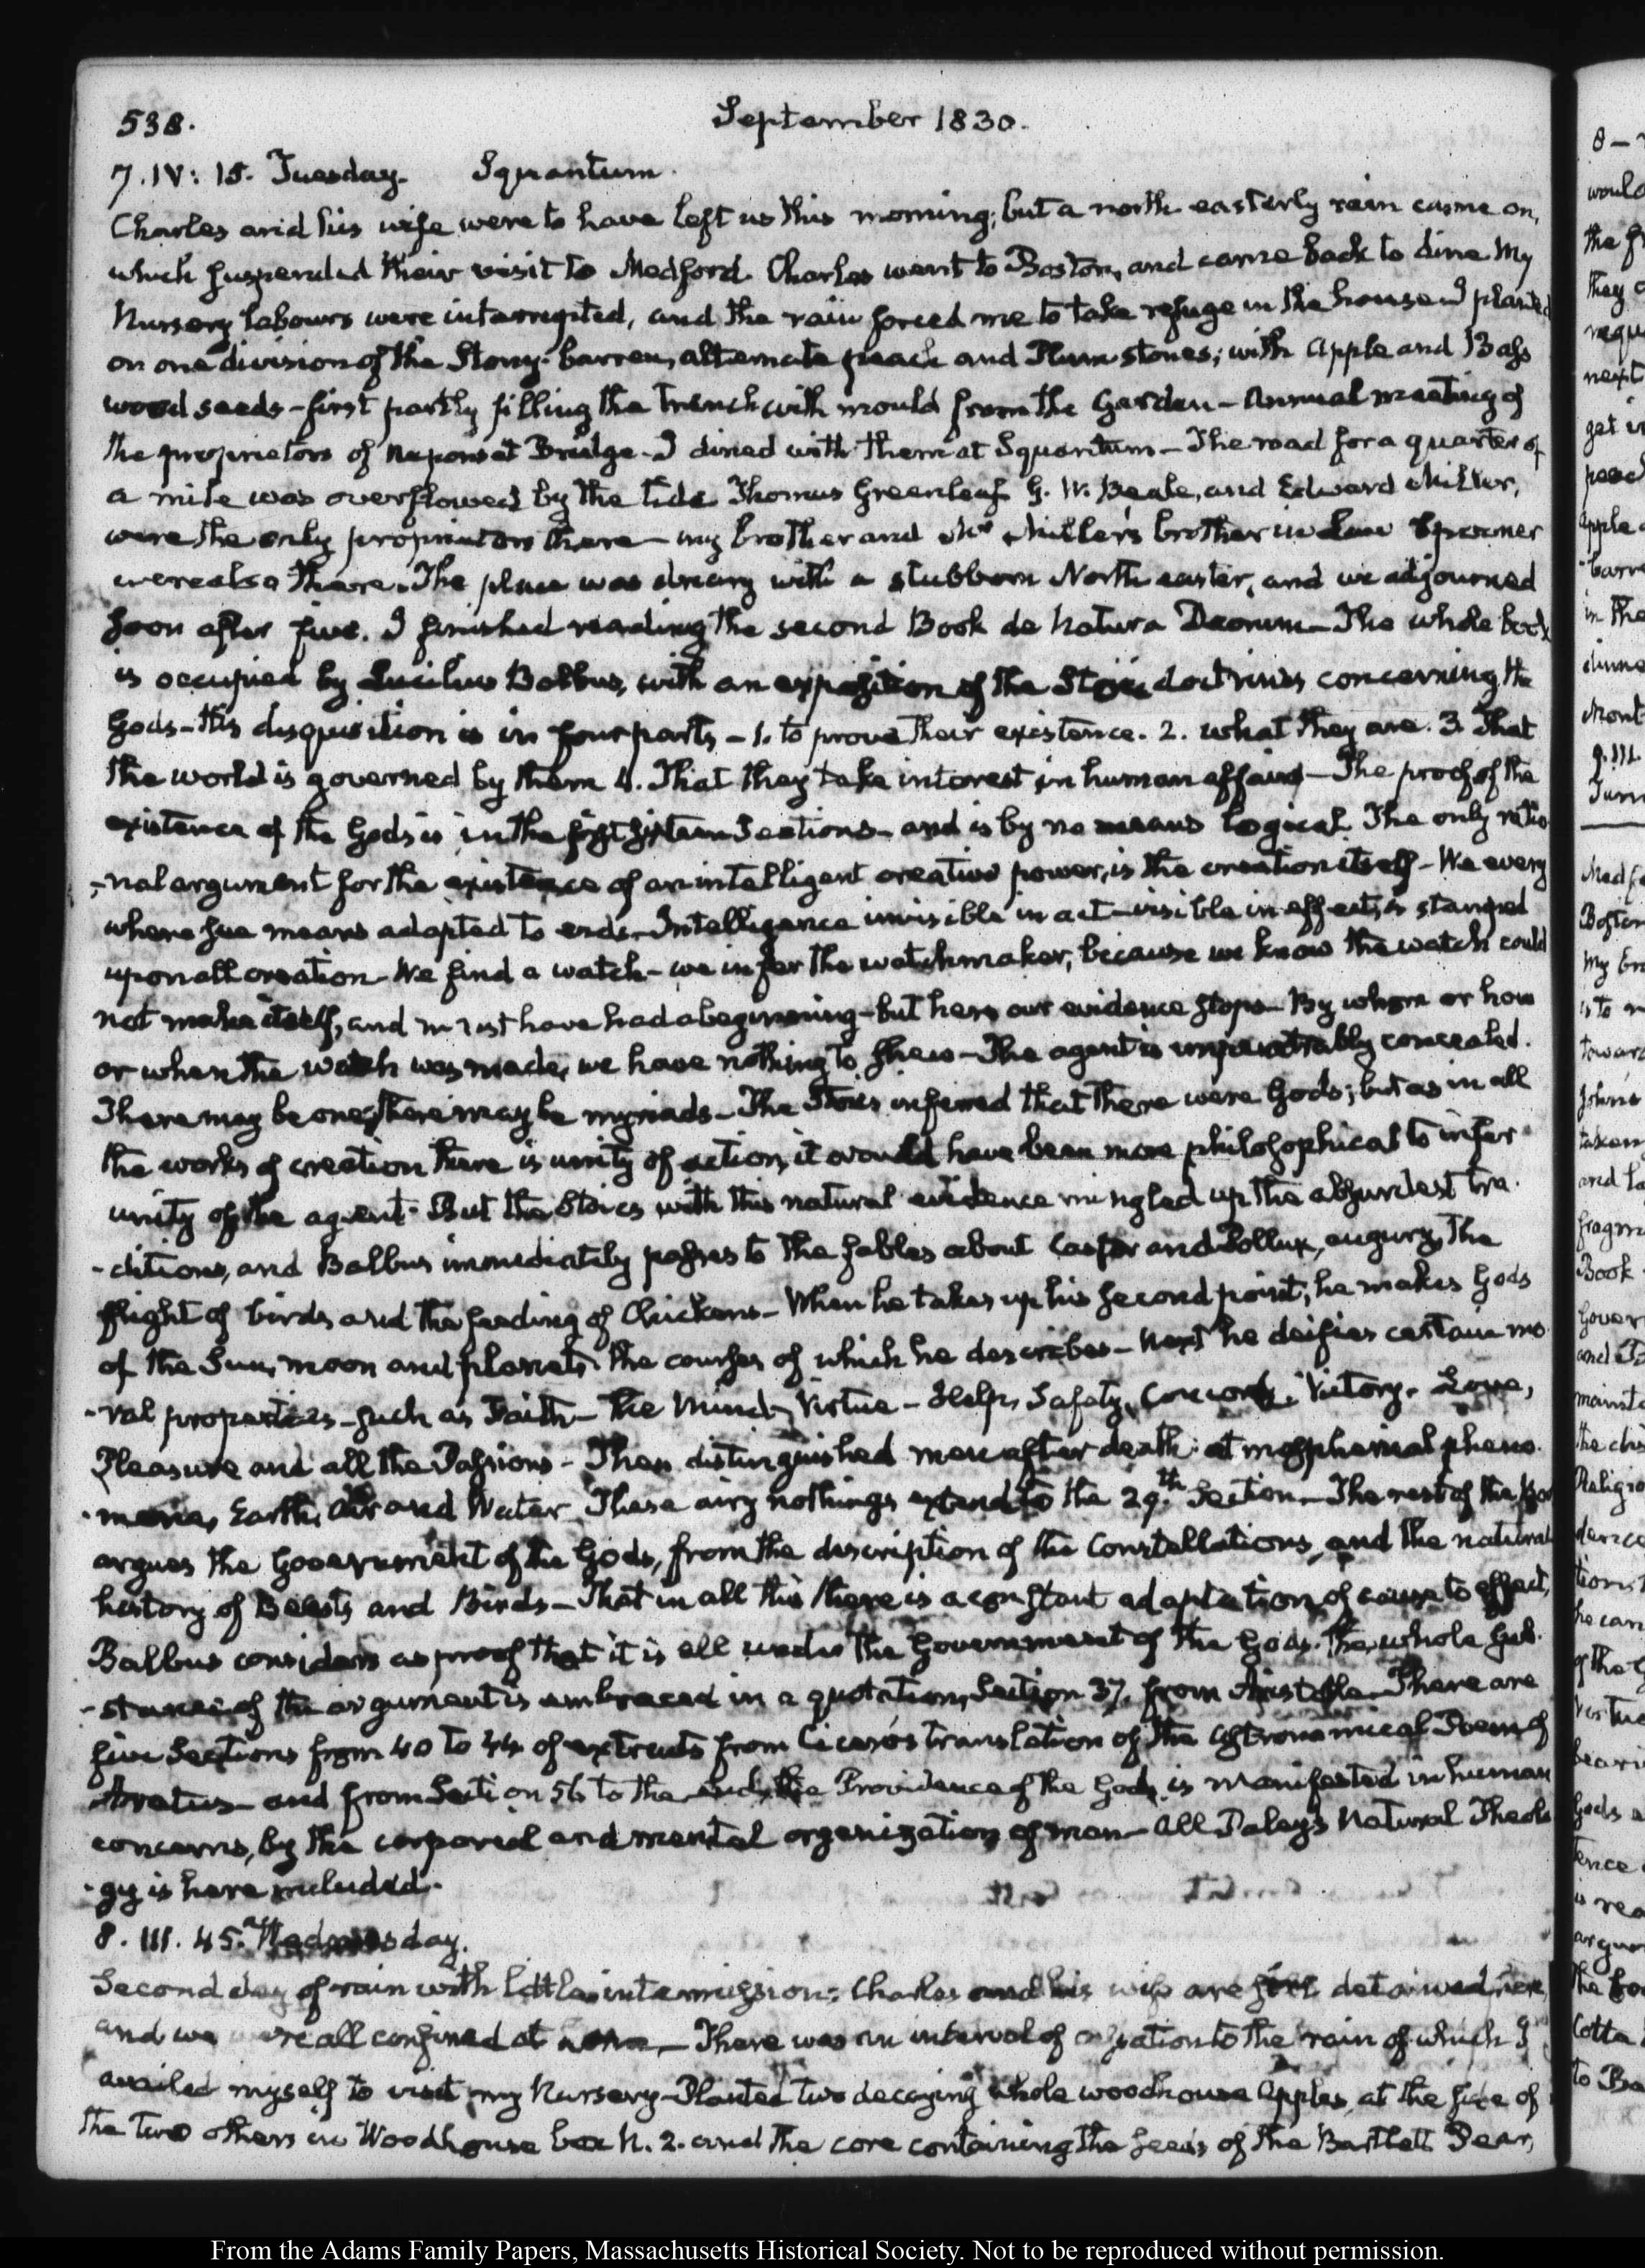 538.
September 1830.
7. IV: 15. Tuesday. Squantum.
Charles and his wife were to have left us this morning; but a north easterly rain came on,
which suspended their visit to Medford. Charles went to Boston, and came back to dine My
Nursery labours were interrupted, and the rain forced me to take refuge in the house I planted
on one division of the Stony-barren, alternate peach and Plum stones; with Apple and Bass
wood seeds - first partly filling the trench with mould from the Garden - Annual meeting of
the proprietors of Neponset Bridge - I dined with them at Squantum - The road for a quarter of
a mile was overflowed by the tide Thomas Greenleaf G. W. Beale, and Edward Miller,
were the only proprietors there - my brother and Mr Miller's brother in Law Spooner
were also there. The place was dreary with a stubborn North easter, and we adjourned
soon after five. I finished reading the second Book de Natura Deorum - The whole book
is occupied by Lucilius Balbus, with an exposition of the Stoic doctrines concerning the
Gods - His disquisition is in four parts - 1. to prove their existence. 2. what they are. 3. That
the world is governed by them 4. That they take interest in human affairs - The proof of the
existence of the Gods is in the first sixteen Sections - and is by no means logical The only ratio
-nal argument for the existence of an intelligent creative power, is the creation itself - We every
where see means adapted to ends. Intelligence invisible in act - visible in effects, is stamped
upon all creation - We find a watch - we infer the watchmaker, because we know the watch could
not make itself, and must have had a beginning - but here our evidence stops - By whom or how
or when the watch was made, we have nothing to shew - The agent is impenetrably concealed.
There may be one, there may be myriads - The Stoics inferred that there were Gods; but as in all
the works of creation there is unity of action, it would have been more philosophical to infer
unity of the agent - But the Stoics with this natural evidence mingled up the absurdest tra
-ditions, and Balbus immediately passes to the fables about Castor and Pollux, augury, the
flight of birds and the feeding of Chickens - When he takes up his second point, he makes Gods
of the Sun, moon and planets the courses of which he describes - Next he deifies certain mo
-ral properties - such as Faith - The Mind - Virtue - Help, Safety, Concord, Victory. Love,
Pleasure and all the Passions - Then distinguished men after death: atmospherical pheno
-mena, Earth, Air and Water. These airy nothings extend to the 29.th Section - The rest of the
argues the Government of the Gods, from the description of the Constellations, and the natural
history of Beasts and Birds - That in all this there is a constant adaptation of cause to effect,
Balbus considers as proof that it is all under the Government of the Gods. The whole sub
-stance of the argument is embraced in a quotation, Section 37. from Aristotle. There are
five Sections from 40 to 44 of extracts from Cicero's translation of the Astronomical Poem of
Aratus - and from Section 56 to the end, the Providence of the Gods is manifested in human
concerns, by the corporeal and mental organization of man - All Paley's Natural Theolo
-gy is here included.
8. III. 45. Wednesday.
Second day of rain with little intermission: Charles and his wife are still detained here
and we were all confined at home - There was an interval of to the rain of which I
availed myself to visit my Nursery - Planted two decaying whole woodhouse Apples, at the side of
the two others in Woodhouse box N. 2. and the core containing the seeds of the Bartlett Pear,
8 -
would
the
they
next
in the
Mont
9. III.
Book
and
to
From the Adams Family Papers, Massachusetts Historical Society. Not to be reproduced without permission.